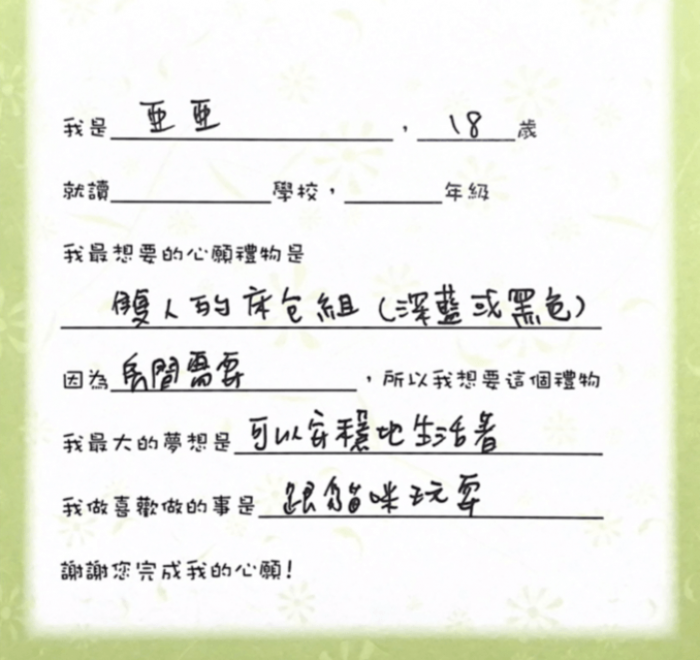 我是亞亞，18歲
就讀______學校，______年級
我最想要的心願禮物是
雙人的床包組（深藍或黑色）
因為房間需要，所以我想要這個禮物
我最大的夢想是可以安穩地生活著
我做喜歡做的事是跟貓咪玩耍
謝謝您完成我的心願！